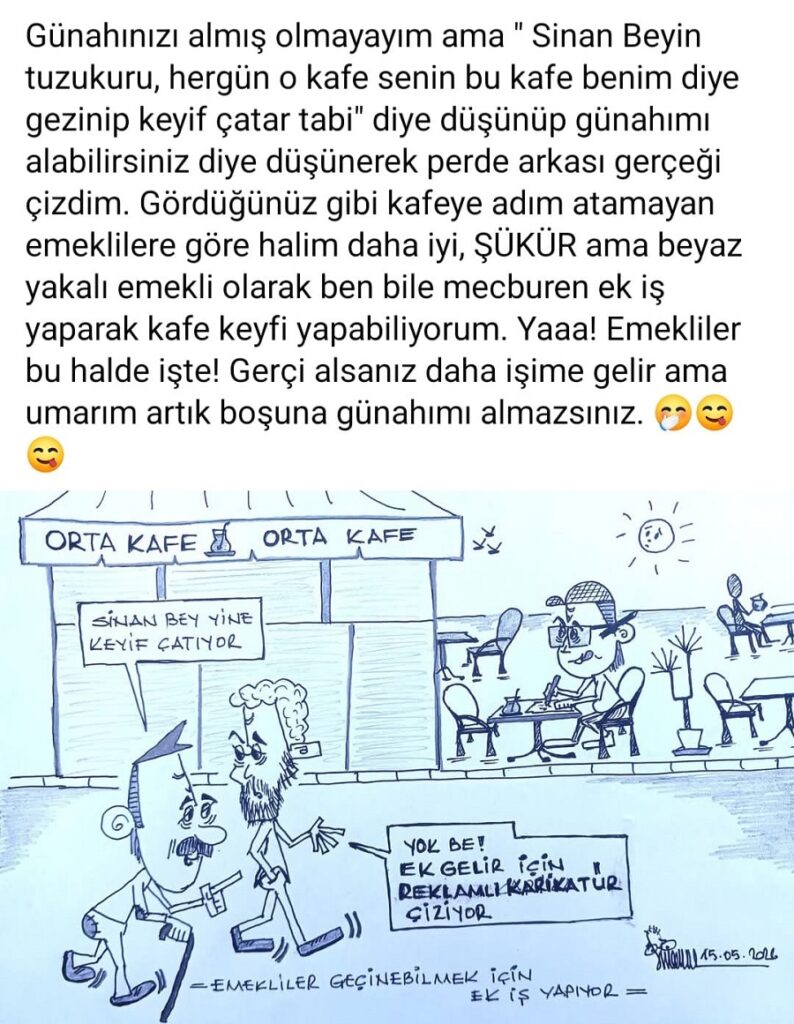 Günahınızı almış olmayayım ama " Sinan Beyin
tuzukuru, hergün o kafe senin bu kafe benim diye
gezinip keyif çatar tabi" diye düşünüp günahımı
alabilirsiniz diye düşünerek perde arkası gerçeği
çizdim. Gördüğünüz gibi kafeye adım atamayan
emeklilere göre halim daha iyi, ŞÜKÜR ama beyaz
yakalı emekli olarak ben bile mecburen ek iş
yaparak kafe keyfi yapabiliyorum. Yaaa! Emekliler
bu halde işte! Gerçi alsanız daha işime gelir ama
umarım artık boşuna günahımı almazsınız. 🤭😋
😋
ORTA KAFE ORTA KAFE
SİNAN BEY YİNE
KEYİF ÇATIYOR
YOK BE!
EK GELİR İÇİN
REKLAMLI KARİKATÜR
ÇİZİYOR
15.05.2026
= EMEKLİLER GEÇİNEBİLMEK İÇİN
EK İŞ YAPIYOR =